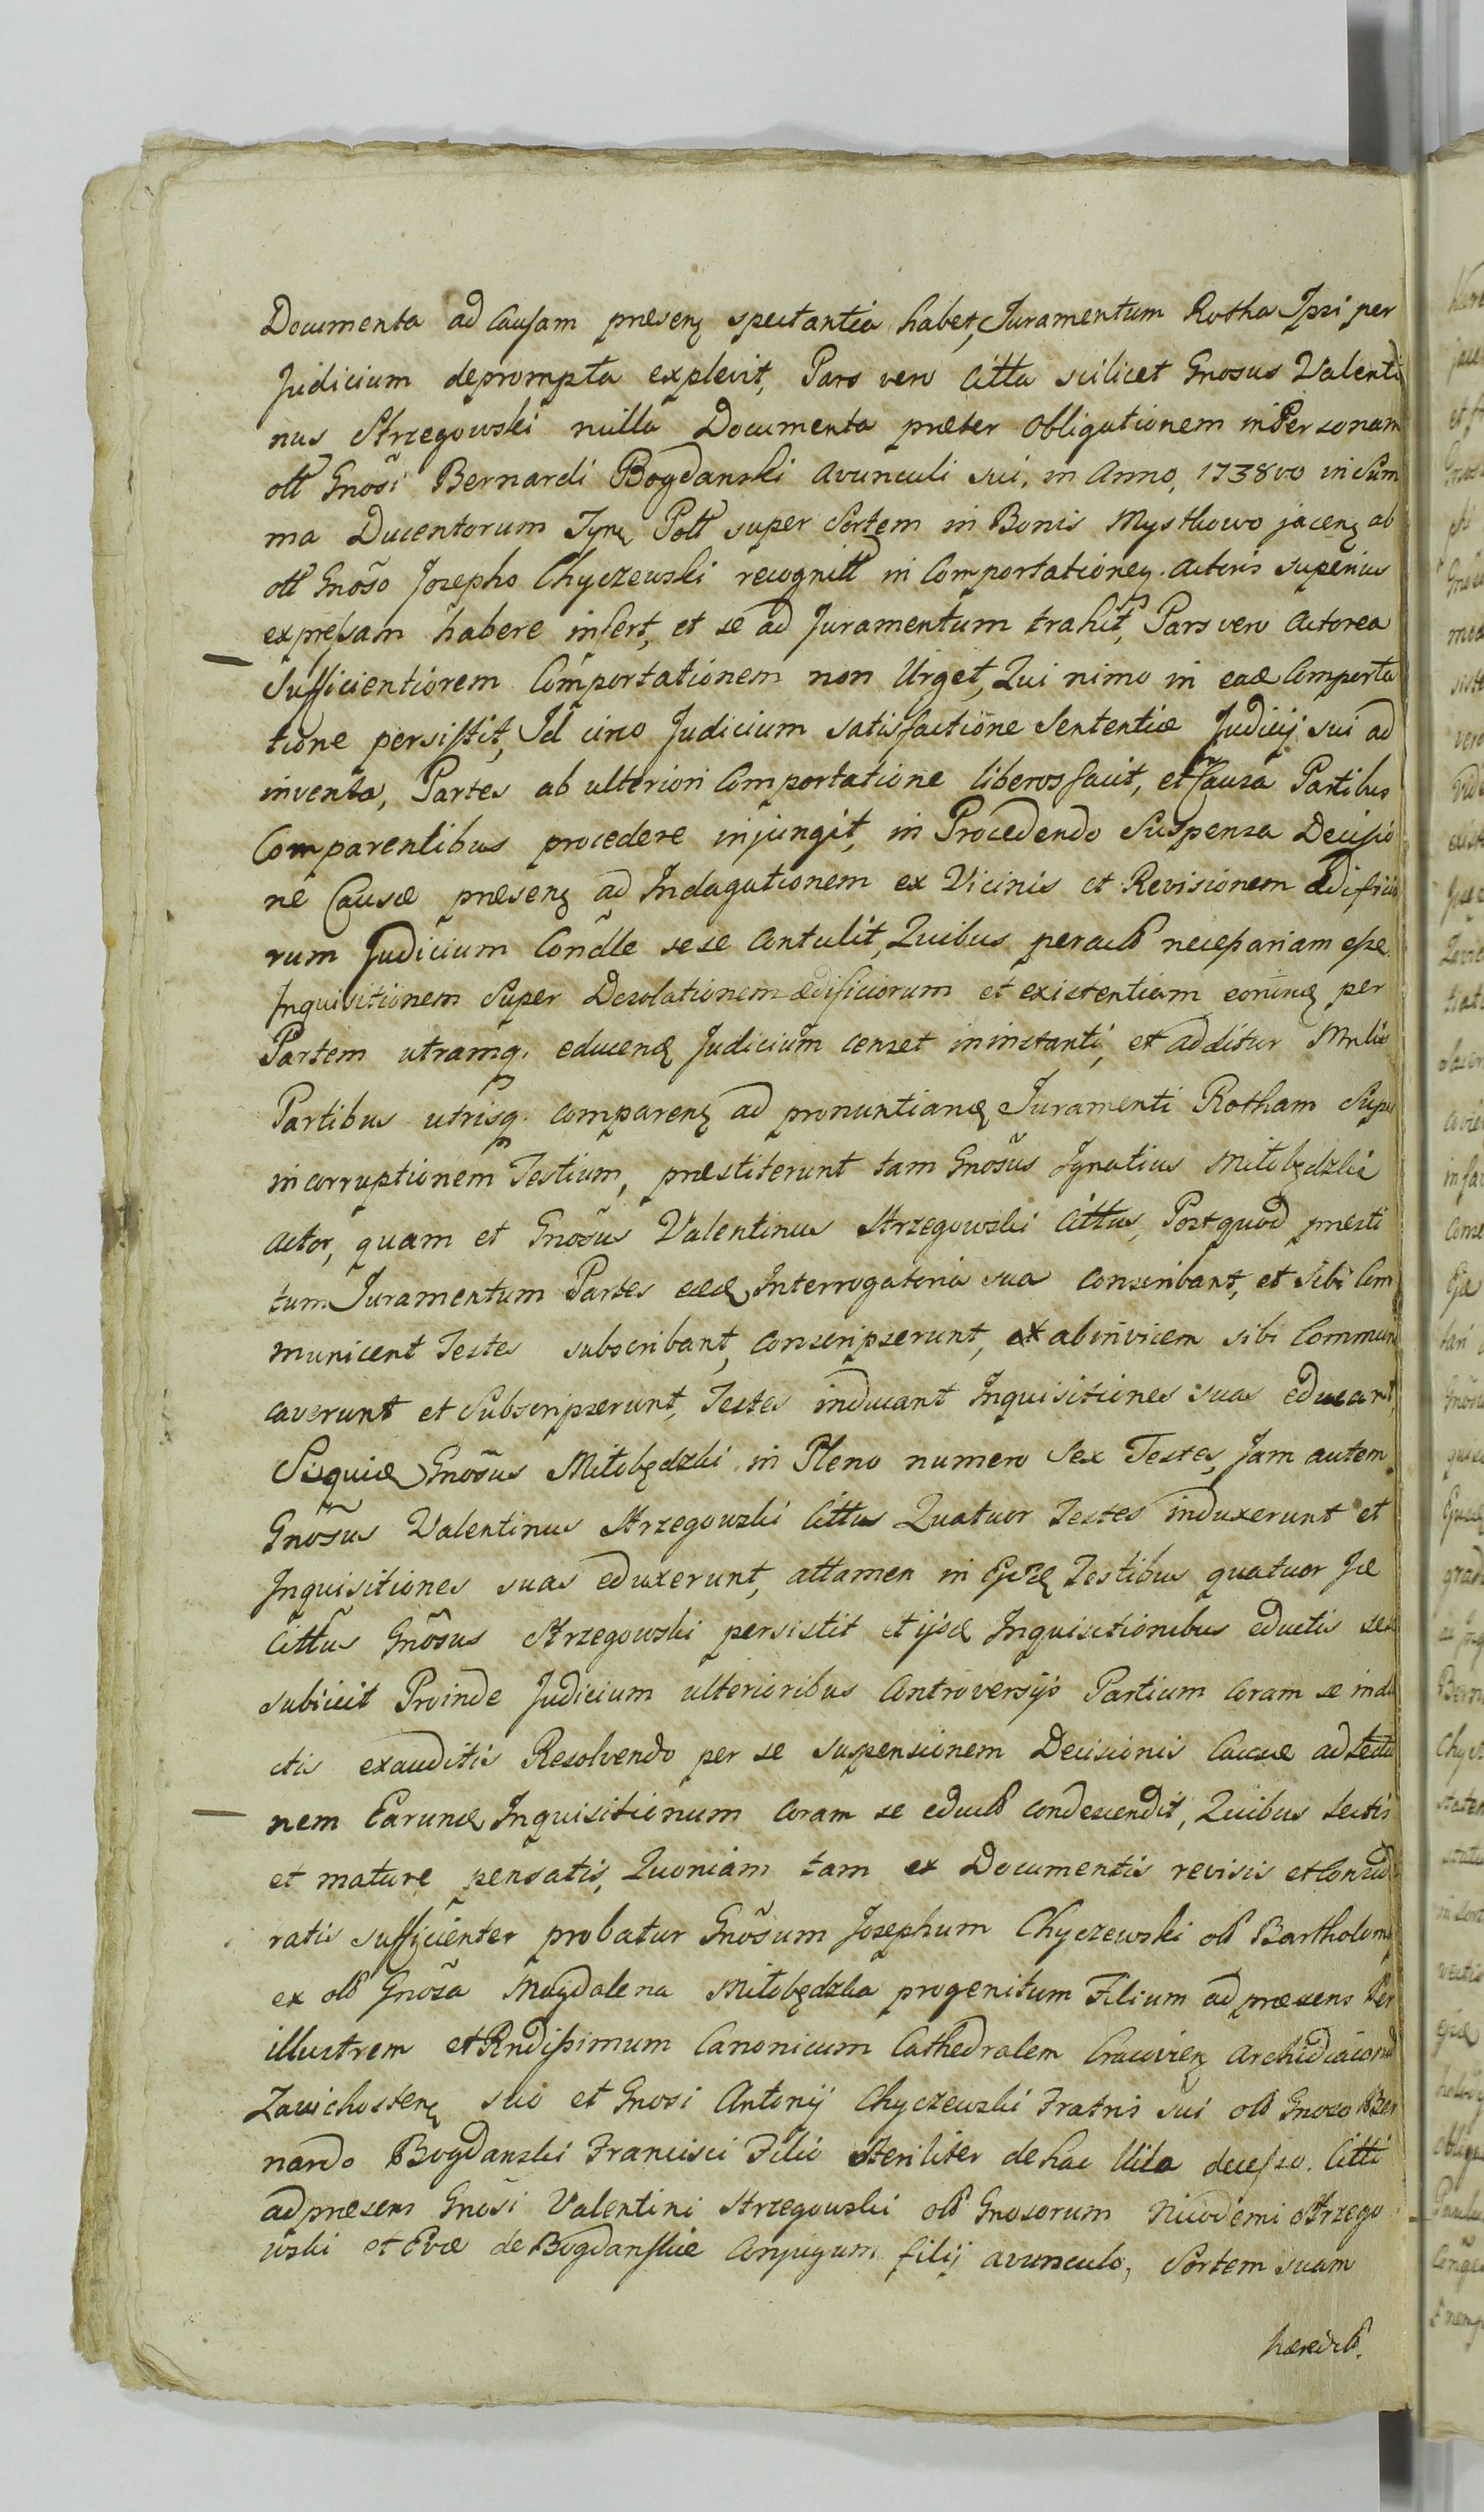 Documenta ad Causam præsenę spectantia habet, Juramentum Rotha Ipsi per
Judicium deprompta explevit, Pars vero Citta scilicet Gnosus Valenti
nus Strzegowski nulla Documenta præter Obligationem in Personam
olt Gnõsi Bernardi Bogdanski Avunculi sui, in Anno, 1738vo in Sum
ma Ducentorum Tynę Poll super Sortem in Bonis Mystkowo jacenę ab
olt Gnõso Josepho Chyczewski recognitt in Comportationeȝ. Actoris superius
expressam habere infert, et se ad Juramentum trahit, Pars vero Actorea
Sufficientiorem Comportationem non Urget, Qui nimo in eadę Comporta
tione persistit, Id circo Judicium satisfactione Sententiæ Judicij sui ad
inventa, Partes ab ulteriori Comportatione liberos facit, et Causa Partibus
Comparentibus procedere injungit, in Procedendo Suspensa Decisio
ne Causæ præsenę ad Indagationem ex Vicinis et Revisionem ædificio
rum Judicium Condle sese Contulit, Quibus peractis necessariam esse
Inquisitionem Super Desolationem ædificiorum et existentiam eorundę per
Partem utramq. educendę Judicium censet in instanti, et additur Mnlis
Partibus utrisq. comparenę ad pronuntiandę Juramenti Rotham Super
in corruptionem Testium, præstiterunt tam Gnosũs Ignatius Miłobędzki
Actor, quam et Gnõsus Valentinus Strzegowski Cittus, Postquod præsti
tum Juramentum Partes eædę Interrogatoria sua conscribant, et sibi Com
municent Testes subscribant, conscripserunt, et ab invicem sibi Communi
caverunt et Subscripserunt, Testes inducant Inquisitiones suas educant,
Siquidę Gnõsus Miłobędzki in Pleno numero Sex Testes, Jam autem
Gnõsus Valentinus Strzegowski Cittus Quatuor Testes induxerunt et
Inquisitiones suas eduxerunt, attamen in Ejsdę Testibus quatuor Ide
Cittũs Gnõsus Strzegowski persistit et ijsdę Inquisitionibus eductis sese
subiicit Proinde Judicium ulterioribus Controversijs Partium Coram se indu
ctis exauditis Resolvendo per se suspensionem Decisionis Causæ ad Lectio
nem Earundę Inquisitionum Coram se eductt condescendit, Quibus Lectis
et mature pensatis, Quoniam tam ex Documentis revisis et Conside
ratis sufficienter probatur Gnõsum Josephum Chyczewski olt Bartholomei
ex olt Gnõsa Magdalena Miłobędzka progenitum Filium ad præsens Per
illustrem et Rndissimum Canonicum Cathedralem Cracovienę Archidiaconum
Zawichostenę suo et Gnosi Antonij Chyczewski Fratris sui olt Gnoso Ber
nardo Bogdanski Francisci Filio Steriliter de hac Vita decesso. Citti
ad præsens Gnosi Valentini Strzegowski olt Gnosorum Nicodemi Strzego
wski et Evæ de Bogdanskie Conjugum filij avunculo, Sortem suam
hæredtt.